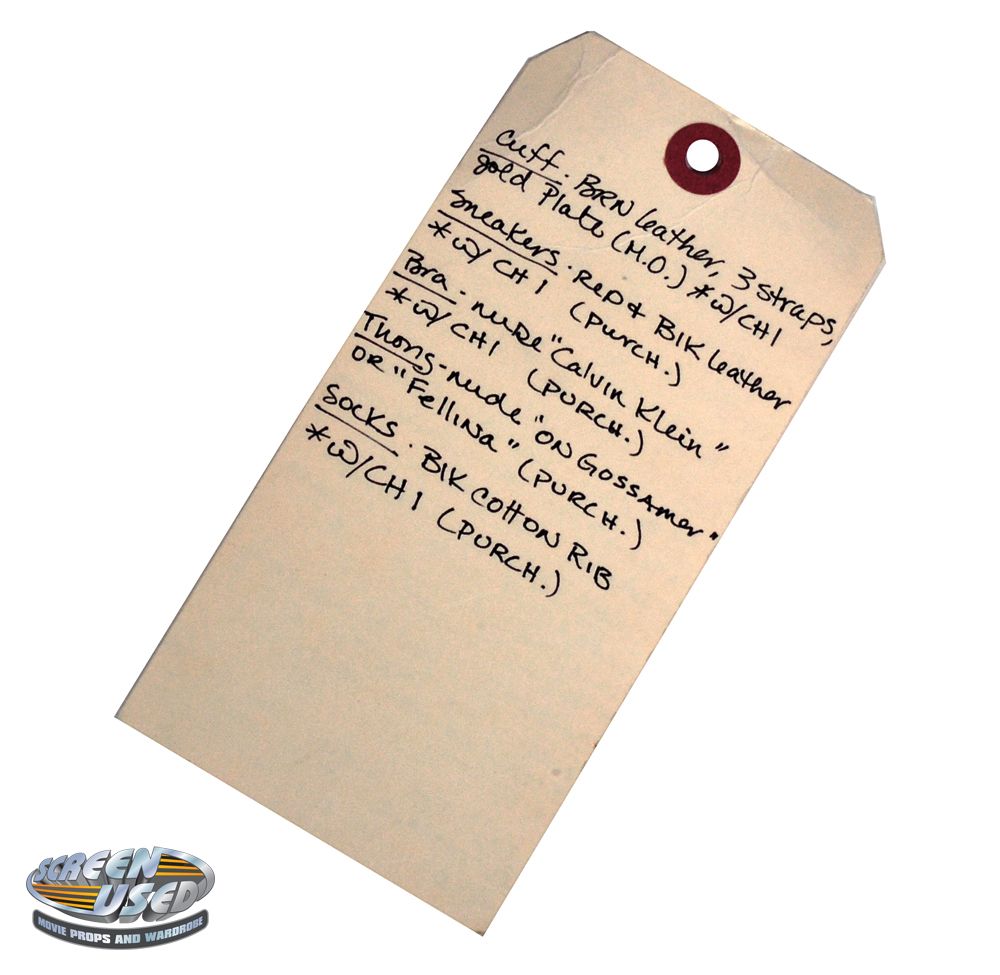 Cuff. BRN leather, 3 straps,
gold Plate (M.O.) *w/CH1
Sneakers. Red & Blk leather
*w/ CH 1 (purch.)
Bra - nude "Calvin Klein"
*w/CH1 (PURCH.)
Thong - nude "ON GOSSAMER"
OR "Fellina" (PURCH.)
Socks. Blk cotton RIB
*w/CH 1 (PURCH.)
SCREEN
USED
MOVIE PROPS AND WARDROBE